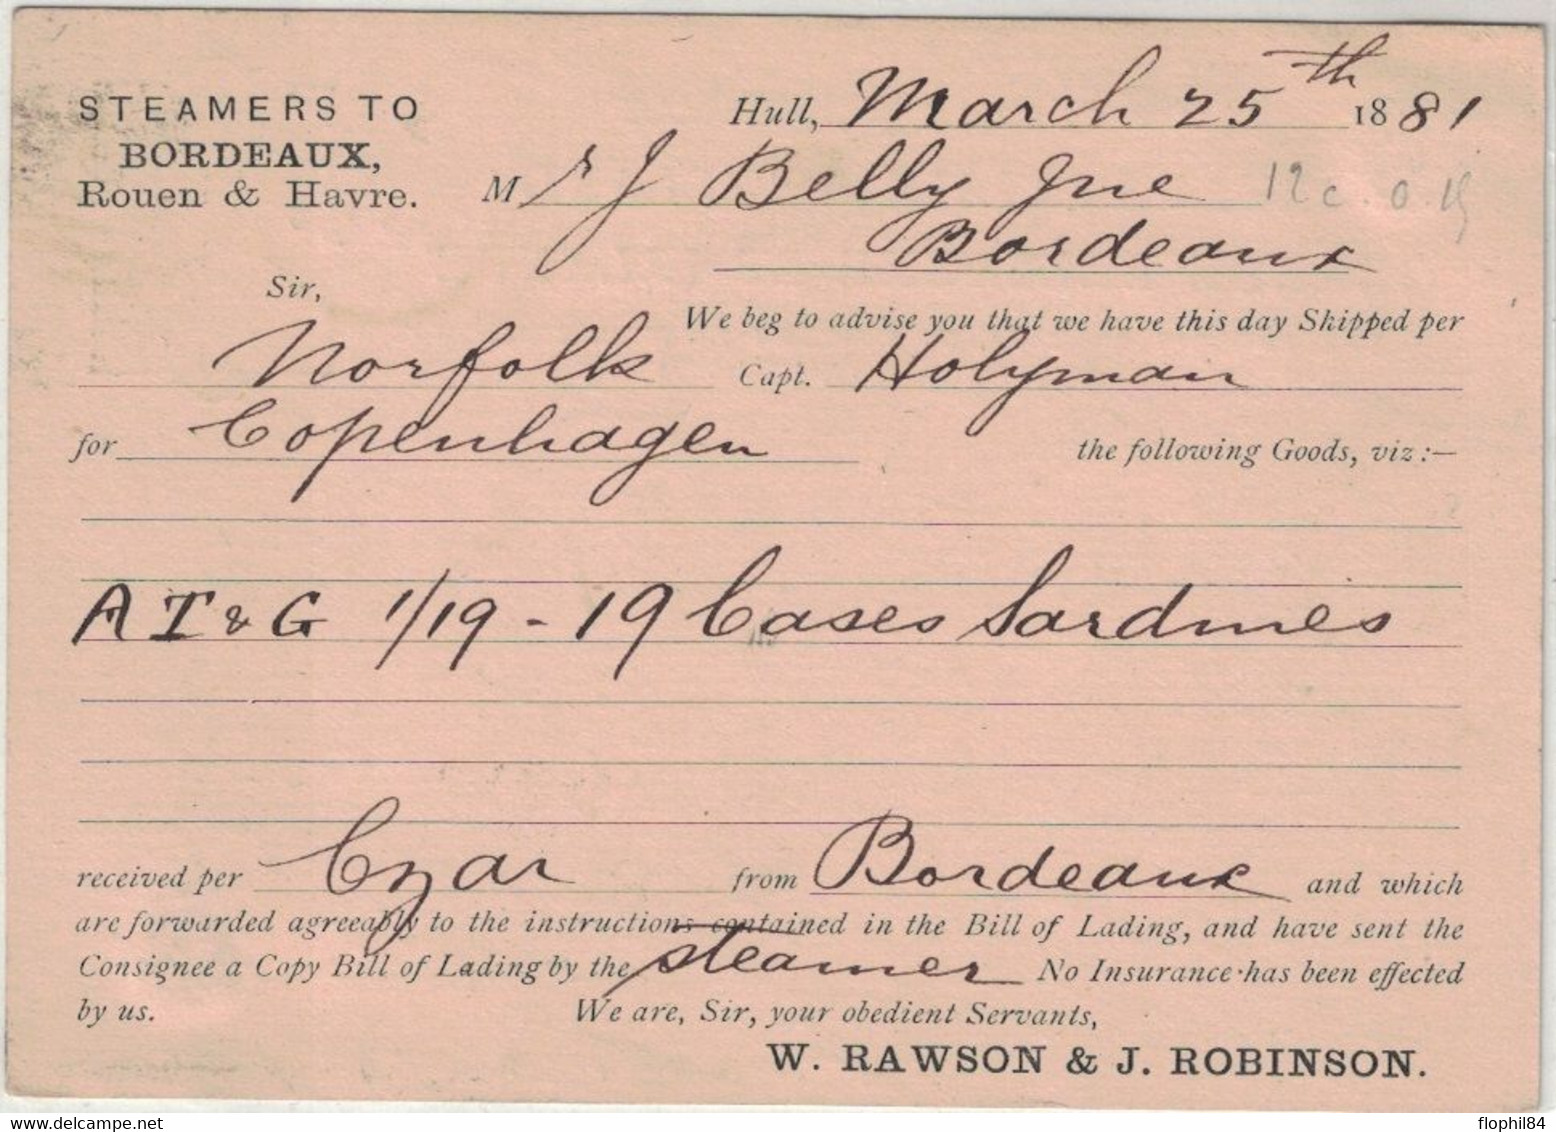 STEAMERS TO
BORDEAUX,
Rouen & Havre.
Hull, March 25th 1881
Mr J Belly Jne
12c. 0.15
Bordeaux
Sir,
We beg to advise you that we have this day Shipped per
Norfolk Capt. Holyman
for Copenhagen the following Goods, viz:—
A T & G 1/19 - 19 Cases Sardines
received per Czar from Bordeaux and which
are forwarded agreeably to the instructions contained in the Bill of Lading, and have sent the
Consignee a Copy Bill of Lading by the steamer No Insurance has been effected
by us. We are, Sir, your obedient Servants,
W. RAWSON & J. ROBINSON.
delcampe.net
flophil84